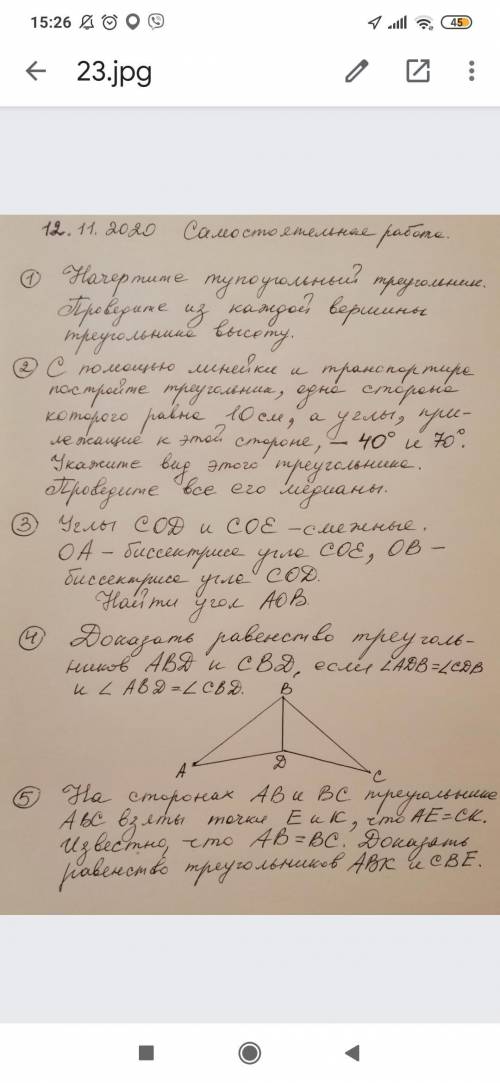 15:26
45
23.jpg
12.11.2020 Самостоятельная работа.
① Начертите тупоугольный треугольник.
Проведите из каждой вершины
треугольника высоту.
② С помощью линейки и транспортира
постройте треугольник, одна сторона
которого равна 10 см, а углы, при-
лежащие к этой стороне, – 40° и 70°.
Укажите вид этого треугольника.
Проведите все его медианы.
③ Углы COD и COE – смежные.
OA – биссектриса угла COE, OB –
биссектриса угла COD.
Найти угол AOB.
④ Доказать равенство треуголь-
ников ABD и CBD, если ∠ADB=∠CDB
и ∠ABD=∠CBD.
B
A
D
C
⑤ На сторонах AB и BC треугольника
ABC взяты точки E и K, что AE=CK.
Известно, что AB=BC. Доказать
равенство треугольников ABK и CBE.